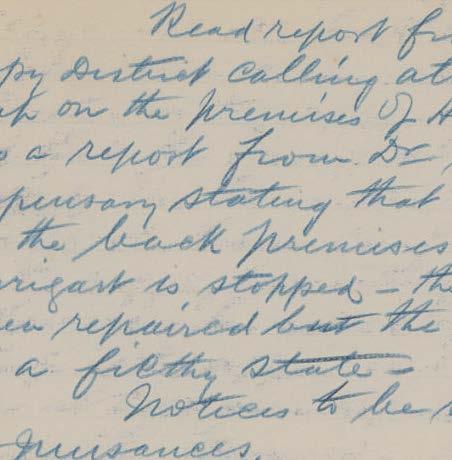 Read report fr
ppy District calling at
on the premises of H
o a report from Dr
pensary stating that
the back premises
rrigart is stopped - the
en repaired but the
a filthy state -
Notices to be
nuisances.